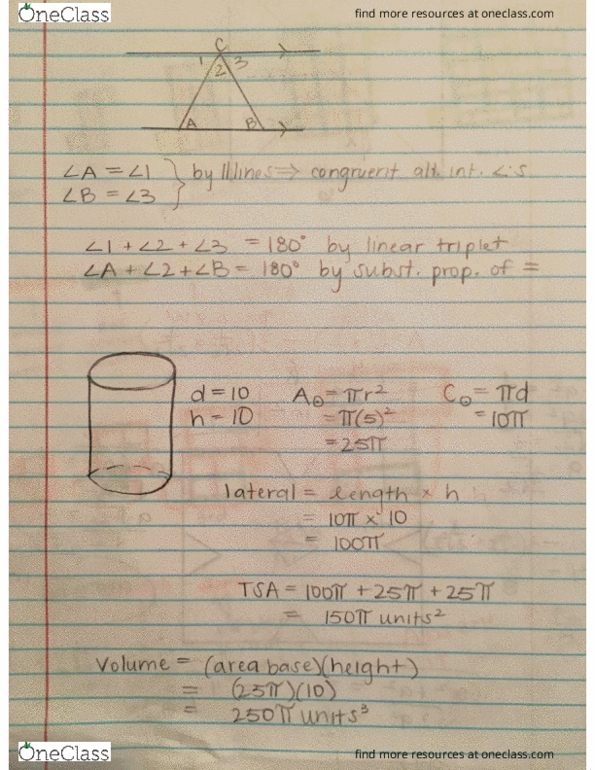 OneClass
find more resources at oneclass.com
C
1 2 3
A B
∠A = ∠1 } by || lines => congruent alt. int. ∠'s
∠B = ∠3
∠1 + ∠2 + ∠3 = 180° by linear triplet
∠A + ∠2 + ∠B = 180° by subst. prop. of =
d = 10 A⊙ = πr² C⊙ = πd
h = 10 = π(5)² = 10π
= 25π
lateral = length × h
= 10π × 10
= 100π
TSA = 100π + 25π + 25π
= 150π units²
Volume = (area base)(height)
= (25π)(10)
= 250π units³
OneClass
find more resources at oneclass.com